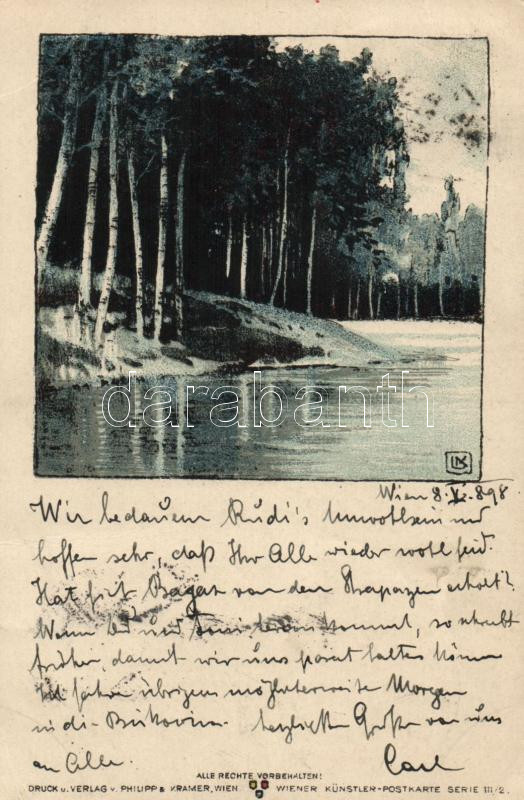 darabanth
LK
Wien 8. V. 898
Wir bedauern Rudi's Unwohlsein und
hoffen sehr, daß Ihr Alle wieder wohl seid.
Hat sich von den Strapazen erholt?
Wenn und kommt, so schreibt
früher, damit wir uns parat halten können
Ich fahre übrigens möglicherweise Morgen
in die Bukovina. Herzlichste Grüße von uns
an Alle. Carl
ALLE RECHTE VORBEHALTEN!
DRUCK u. VERLAG v. PHILIPP & KRAMER, WIEN WIENER KÜNSTLER-POSTKARTE SERIE III/2.